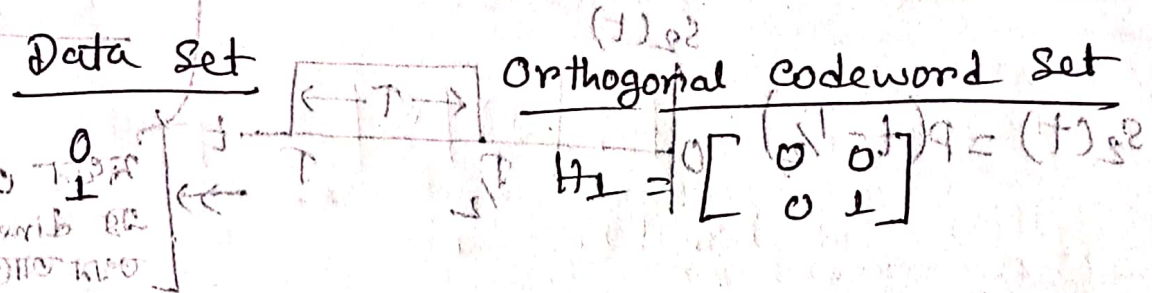 Data Set Orthogonal codeword Set
0 H1 = [ 0 0
1 0 1 ]